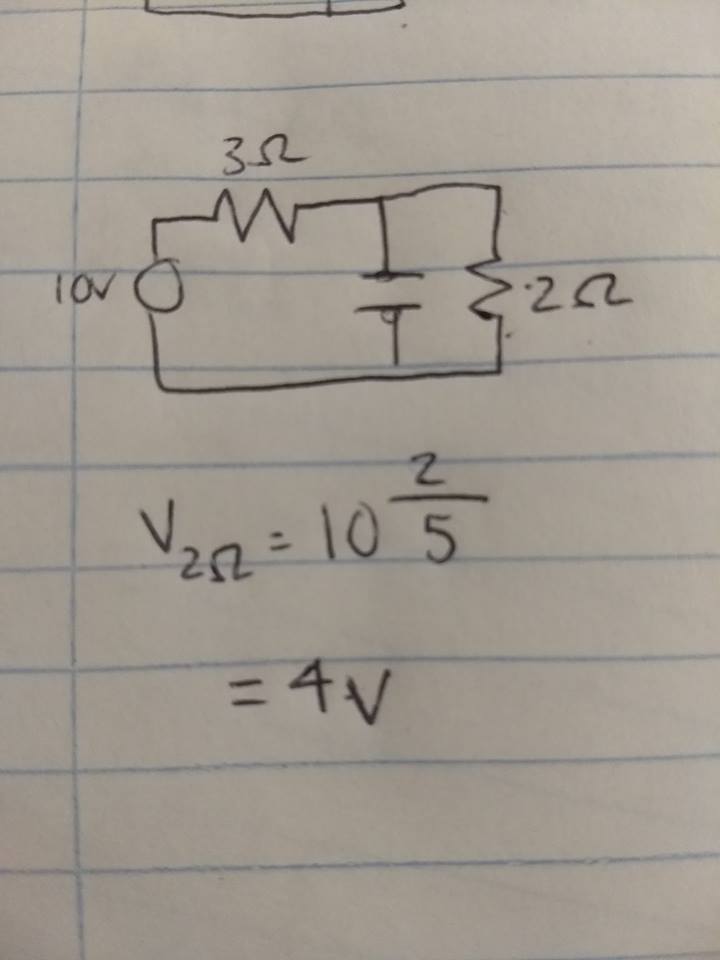 3Ω
10V
2Ω
V₂Ω = 10 2/5
= 4V